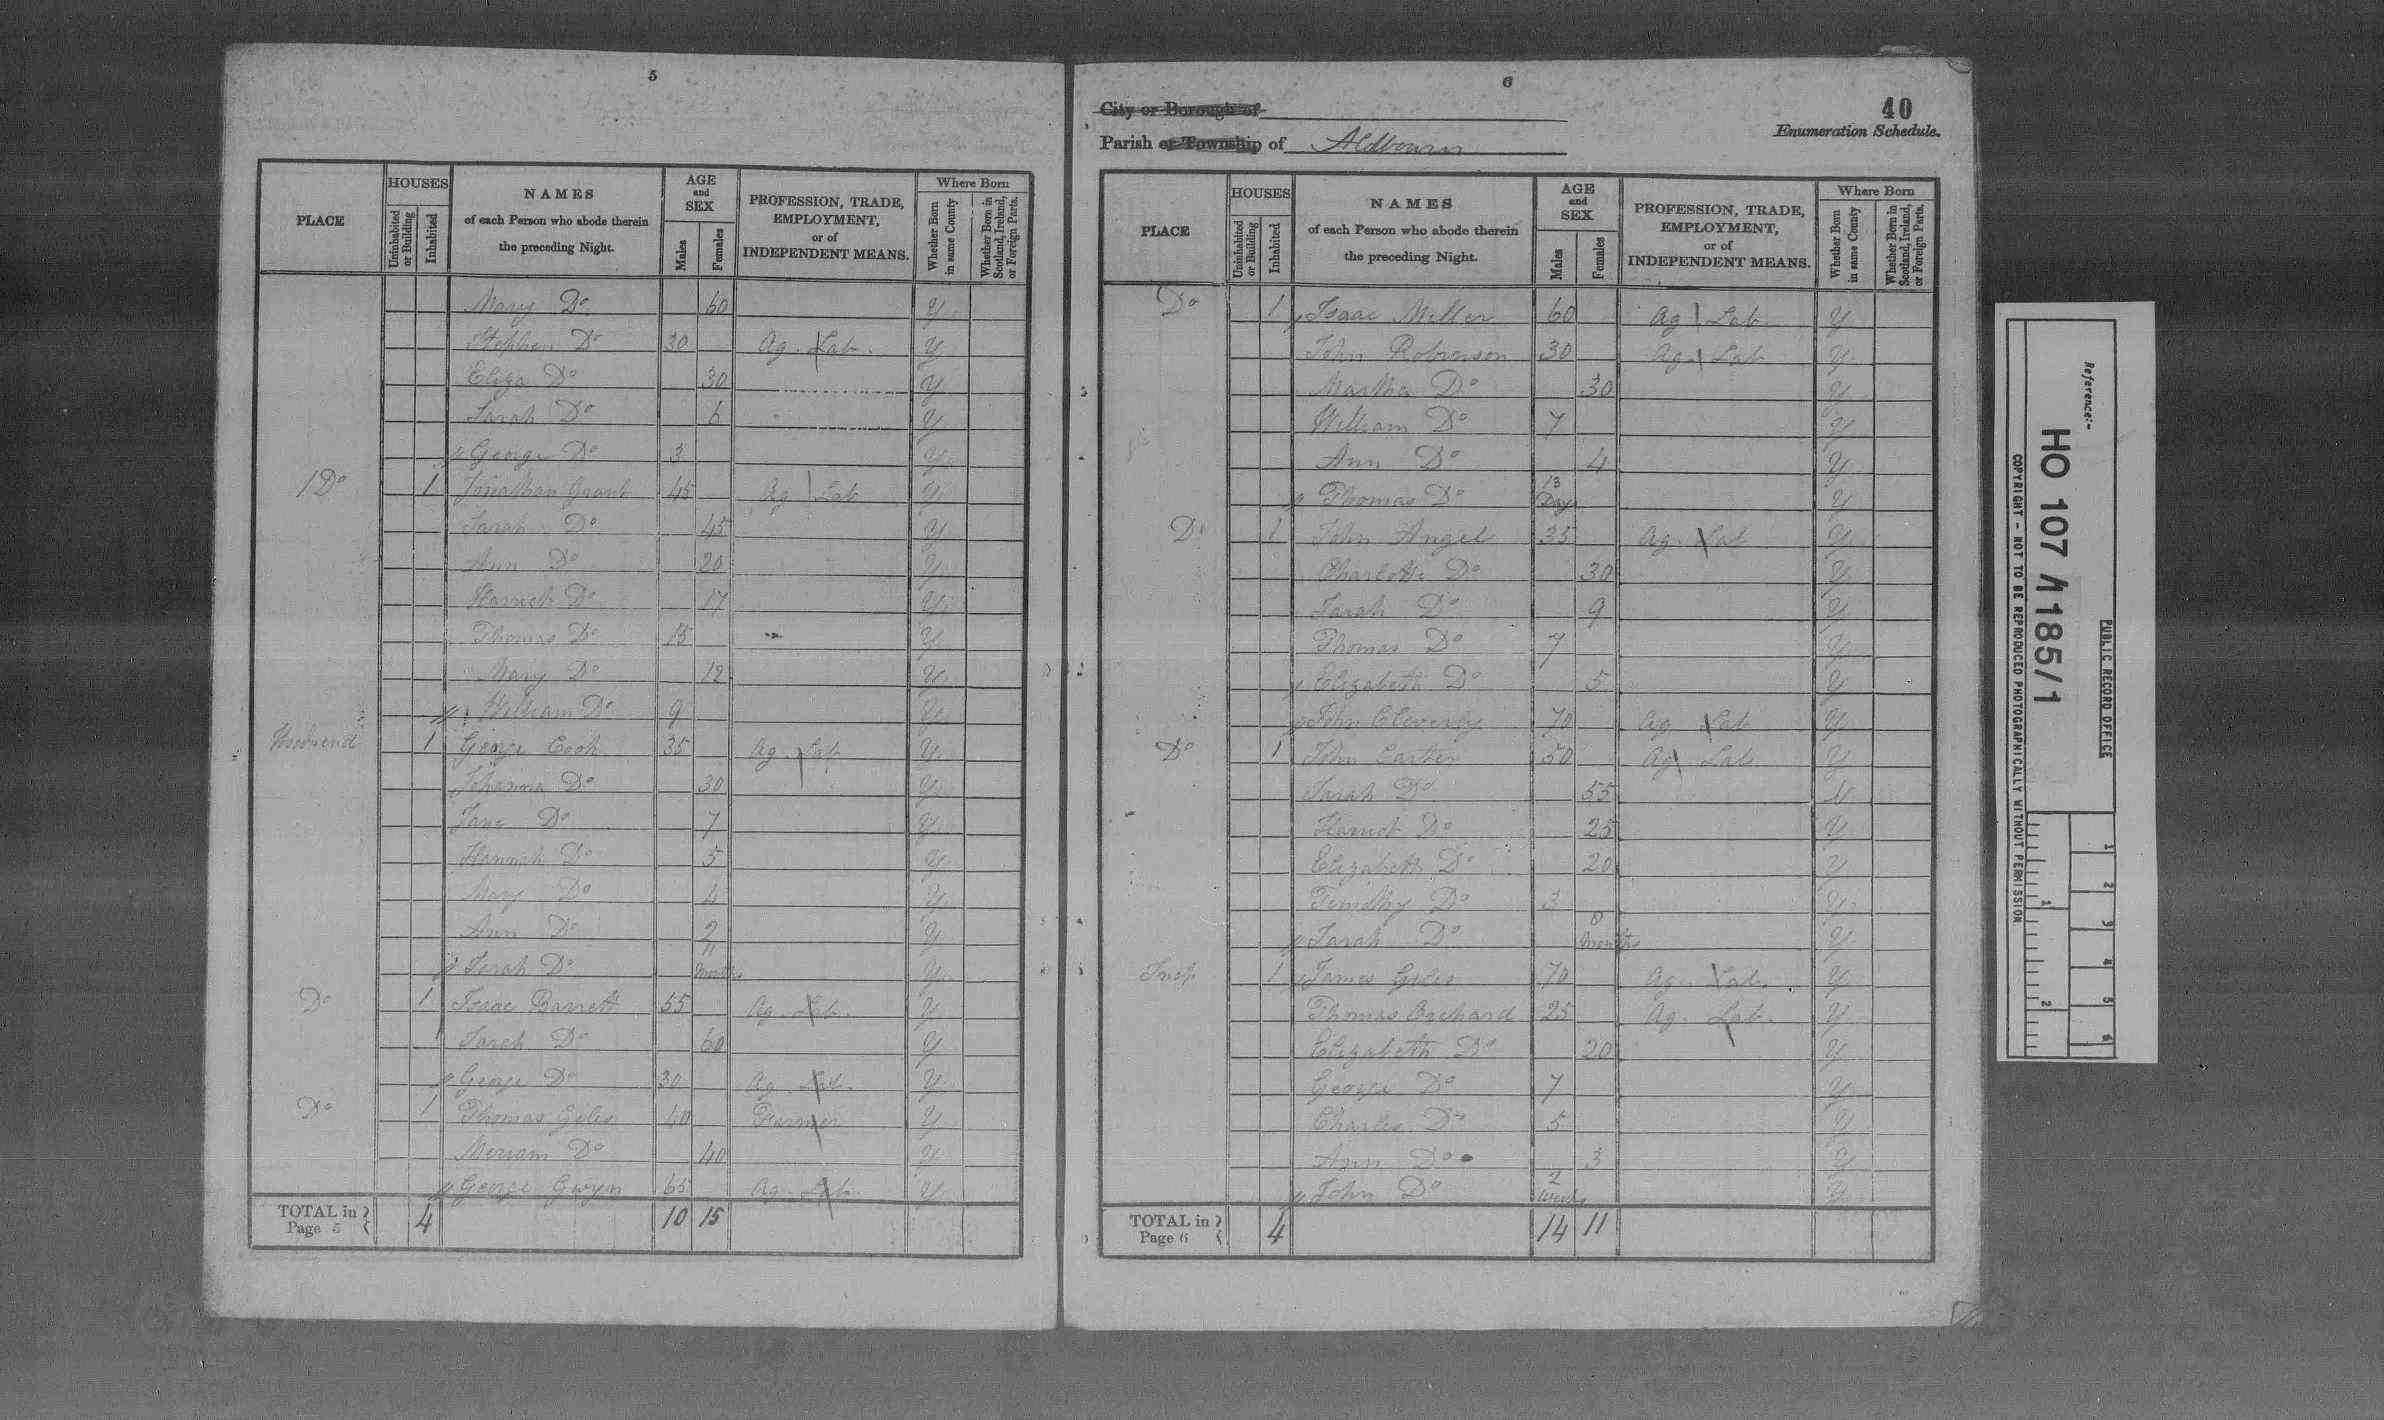 5
PLACE
HOUSES
Uninhabited or Building
Inhabited
NAMES
of each Person who abode therein
the preceding Night.
AGE
and
SEX
Males
Females
PROFESSION, TRADE,
EMPLOYMENT,
or of
INDEPENDENT MEANS.
Where Born
Whether Born in same County
Whether Born in Scotland, Ireland, or Foreign Parts.
Mary Do 60 Y
Stephen Do 30 Ag. Lab. Y
Eliza Do 30 Y
Sarah Do 6 Y
George Do 3 Y
Do 1 Jonathan Grant 45 Ag Lab Y
Sarah Do 45 Y
Ann Do 20 Y
Harriet Do 17 Y
Thomas Do 15 Y
Mary Do 12 Y
William Do 9 Y
Woodsend 1 George Cook 35 Ag. Lab Y
Johanna Do 30 Y
Jane Do 7 Y
Hannah Do 5 Y
Mary Do 4 Y
Ann Do 2 Y
Sarah Do 11 Months Y
Do 1 Isaac Barrett 55 Ag. Lab. Y
Sarah Do 60 Y
George Do 30 Ag. Lab. Y
Do 1 Thomas Giles 40 Farmer Y
Meriam Do 40 Y
George Gwyn 65 Ag. Lab. Y
TOTAL in Page 5 4 10 15
6
City or Borough of
40
Enumeration Schedule.
Parish or Township of Aldbourn
PLACE
HOUSES
Uninhabited or Building
Inhabited
NAMES
of each Person who abode therein
the preceding Night.
AGE
and
SEX
Males
Females
PROFESSION, TRADE,
EMPLOYMENT,
or of
INDEPENDENT MEANS.
Where Born
Whether Born in same County
Whether Born in Scotland, Ireland, or Foreign Parts.
Do 1 Isaac Miller 60 Ag Lab. Y
John Robinson 30 Ag. Lab Y
Martha Do 30 Y
William Do 7 Y
Ann Do 4 Y
Thomas Do 13 Days Y
Do 1 John Angel 35 Ag. Lab Y
Charlotte Do 30 Y
Sarah Do 9 Y
Thomas Do 7 Y
Elizabeth Do 5 Y
John Cleverly 70 Ag Lab Y
Do 1 John Carter 50 Ag Lab Y
Sarah Do 55
Harriet Do 25 Y
Elizabeth Do 20 Y
Timothy Do 3 Y
Sarah Do Months Y
1 James Giles 70 Ag. Lab. Y
Thomas Orchard 25 Ag. Lab. Y
Elizabeth Do 20 Y
George Do 7 Y
Charles Do 5 Y
Ann Do 3 Y
John Do 2 Weeks Y
TOTAL in Page 6 4 14 11
Reference:-
HO 107 /1185/1
PUBLIC RECORD OFFICE
COPYRIGHT - NOT TO BE REPRODUCED PHOTOGRAPHICALLY WITHOUT PERMISSION
1
2
1
2
3
4
5
6